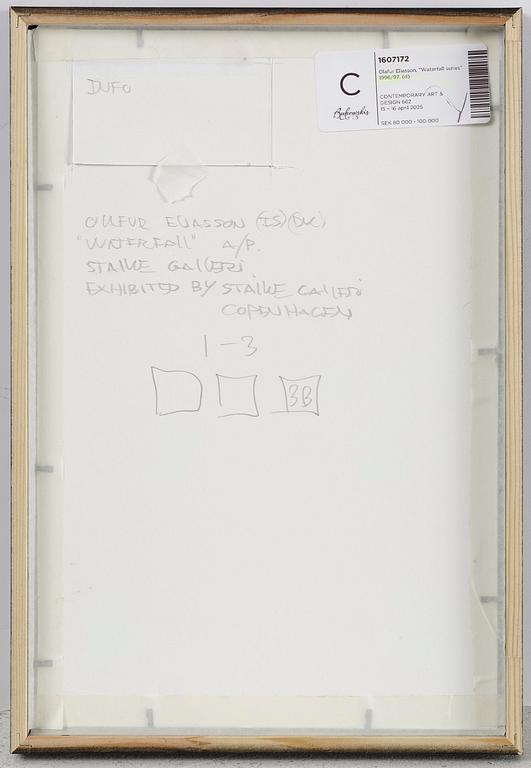 DUFO
C
Bukowskis
1607172
Olafur Eliasson, "Waterfall series"
1996/97. (d)
CONTEMPORARY ART &
DESIGN 662
15 – 16 april 2025
SEK 80 000 - 100 000
OLAFUR ELIASSON (IS)(DK)
"WATERFALL" A/P.
STALKE GALLERI.
EXHIBITED BY STALKE GALLERI
COPENHAGEN
1-3
3B